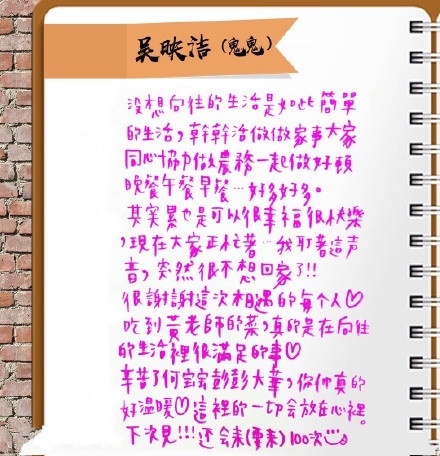 吴映洁（鬼鬼）
没想向往的生活是如此簡單
的生活，幹幹活做做家事大家
同心協力做農務一起做好頓
晚餐午餐早餐…好多好多。
其实累也是可以很幸福很快樂
，現在大家正忙著…我聽著這声
音，突然很不想回家了!!
很謝謝這次相遇的每个人♡
吃到黃老師的菜，真的是在向往
的生活裡很滿足的事♡
辛苦了何宝宝彭彭大華，你们真的
好温暖♡這裡的一切会放在心裡。
下次見!!!还会来(要来)100次